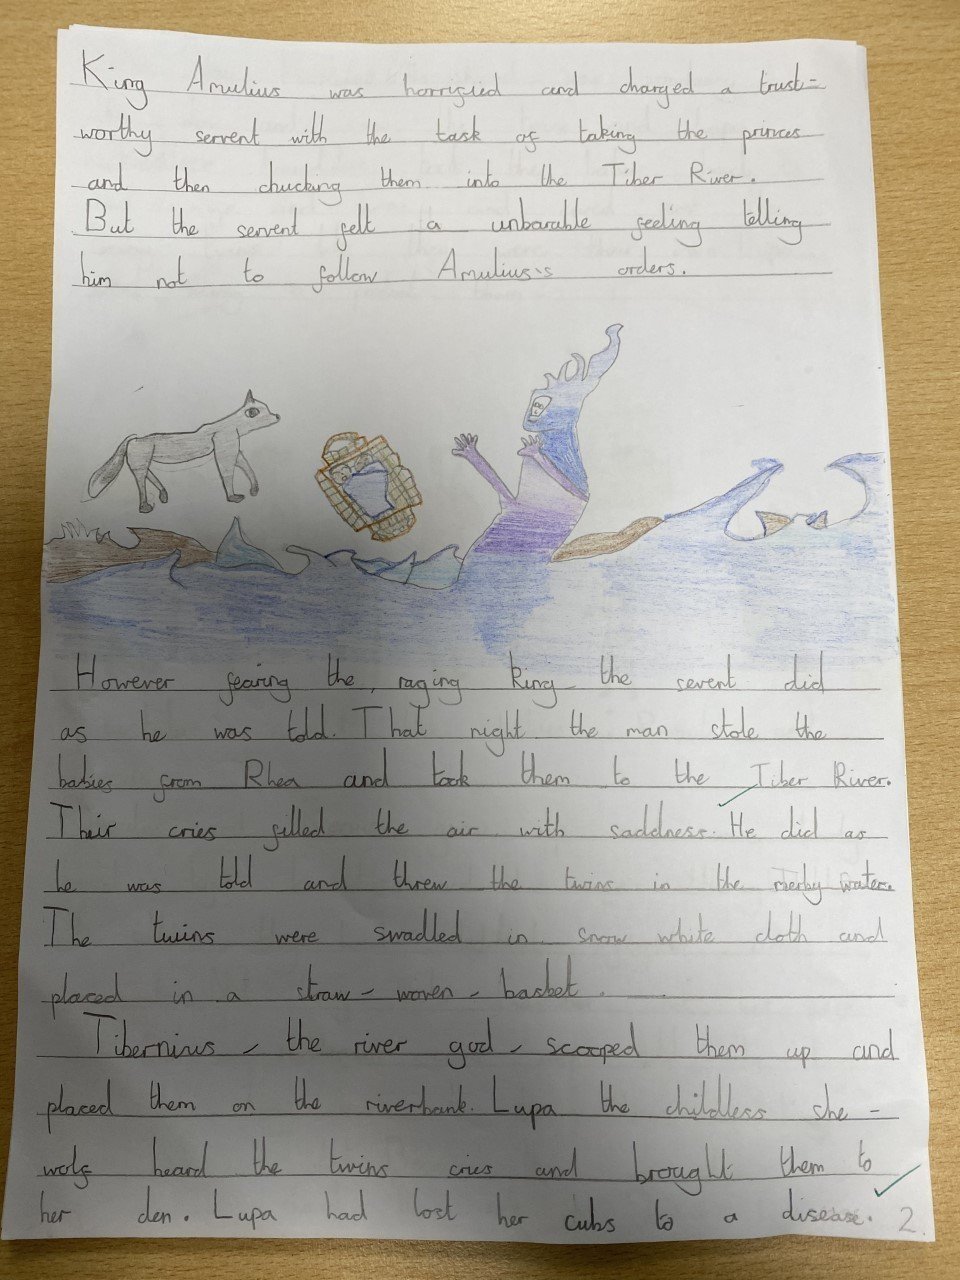 King Amulius was horrified and charged a trust=
worthy servent with the task of taking the princes
and then chucking them into the Tiber River.
But the servent felt a unbarable feeling telling
him not to follow Amulius's orders.
However fearing the, raging king the servent did
as he was told. That night the man stole the
babies from Rhea and took them to the Tiber River.
Their cries filled the air with saddness. He did as
he was told and threw the twins in the water.
The twins were swadled in snow white cloth and
placed in a straw-woven-basket.
Tibernius - the river god - scooped them up and
placed them on the riverbank. Lupa the childless she-
wolf heard the twins cries and brought them to
her den. Lupa had lost her cubs to a disease. 2